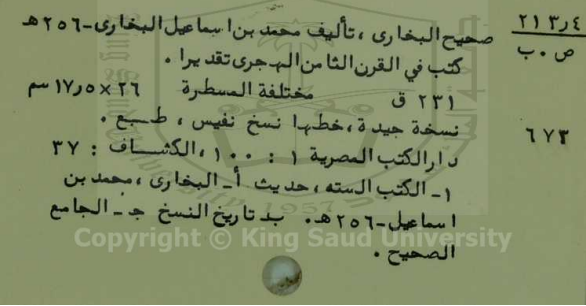 ٢١٣٫٤
ص ٠ ب
صحيح البخارى ، تأليف محمد بن اسماعيل البخارى-٢٥٦هـ
كتب في القرن الثامن الهجرى تقديرا ٠
٢٣١ ق مختلفة المسطرة ٢٦×١٧٫٥ سم
٦٧٣ نسخة جيدة ، خطها نسخ نفيس ، طبع ٠
دار الكتب المصرية ١ : ١٠٠ ، الكشاف : ٣٧
١- الكتب السته ، حديث أ- البخارى ، محمد بن
اسماعيل-٢٥٦هـ ٠ ب- تاريخ النسخ جـ- الجامع
Copyright © King Saud University
الصحيح ٠
1957